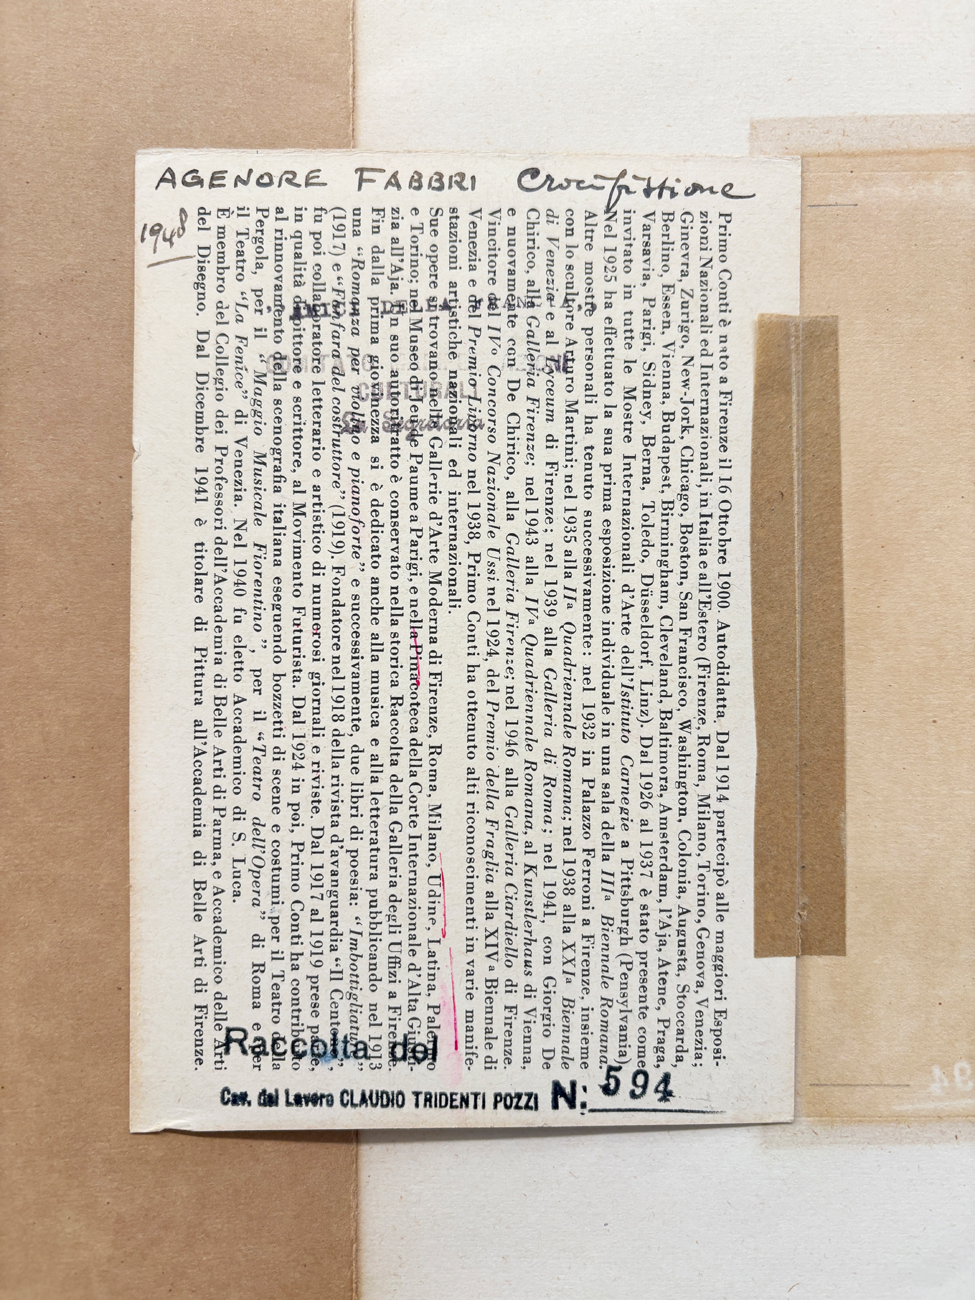 AGENORE FABBRI Crocifissione
1948
Primo Conti è nato a Firenze il 16 Ottobre 1900. Autodidatta. Dal 1914 partecipò alle maggiori Esposi-
zioni Nazionali ed Internazionali, in Italia e all'Estero (Firenze, Roma, Milano, Torino, Genova, Venezia;
Ginevra, Zurigo, New-Jork, Chicago, Boston, San Francisco, Washington, Colonia, Augusta, Stoccarda,
Berlino, Essen, Vienna, Budapest, Birmingham, Cleveland, Baltimora, Amsterdam, l'Aja, Atene, Praga,
Varsavia, Parigi, Sidney, Berna, Toledo, Düsseldorf, Linz). Dal 1926 al 1937 è stato presente come
invitato in tutte le Mostre Internazionali d'Arte dell'Istituto Carnegie a Pittsburgh (Pensylvania).
Nel 1925 ha effettuato la sua prima esposizione individuale in una sala della IIIª Biennale Romana.
Altre mostre personali ha tenuto successivamente: nel 1932 in Palazzo Ferroni a Firenze, insieme
con lo scultore Arturo Martini; nel 1935 alla IIª Quadriennale Romana; nel 1938 alla XXIª Biennale
di Venezia e al Lyceum di Firenze; nel 1939 alla Galleria di Roma; nel 1941, con Giorgio De
Chirico, alla Galleria Firenze; nel 1943 alla IVª Quadriennale Romana, al Kunstlerhaus di Vienna,
e nuovamente con De Chirico, alla Galleria Firenze; nel 1946 alla Galleria Ciardiello di Firenze.
Vincitore del IVº Concorso Nazionale Ussi nel 1924, del Premio della Fraglia alla XIVª Biennale di
Venezia e del Premio Livorno nel 1938, Primo Conti ha ottenuto alti riconoscimenti in varie manife-
stazioni artistiche nazionali ed internazionali.
Sue opere si trovano nelle Gallerie d'Arte Moderna di Firenze, Roma, Milano, Udine, Latina, Palermo
e Torino; nel Museo di Jeu de Paume a Parigi, e nella Pinacoteca della Corte Internazionale d'Alta Giusti-
zia all'Aja. Un suo autoritratto è conservato nella storica Raccolta della Galleria degli Uffizi a Firenze.
Fin dalla prima giovinezza si è dedicato anche alla musica e alla letteratura pubblicando nel 1913
una “Romanza per violino e pianoforte” e successivamente, due libri di poesia: “Imbottigliature”
(1917) e “Fanfara del costruttore” (1919). Fondatore nel 1918 della rivista d'avanguardia “Il Centone”,
fu poi collaboratore letterario e artistico di numerosi giornali e riviste. Dal 1917 al 1919 prese parte,
in qualità di pittore e scrittore, al Movimento Futurista. Dal 1924 in poi, Primo Conti ha contribuito
al rinnovamento della scenografia italiana eseguendo bozzetti di scene e costumi per il Teatro della
Pergola, per il “Maggio Musicale Fiorentino”, per il “Teatro dell'Opera” di Roma e per
il Teatro “La Fenice” di Venezia. Nel 1940 fu eletto Accademico di S. Luca.
È membro del Collegio dei Professori dell'Accademia di Belle Arti di Parma, e Accademico delle Arti
del Disegno. Dal Dicembre 1941 è titolare di Pittura all'Accademia di Belle Arti di Firenze.
Raccolta del
Cav. del Lavoro CLAUDIO TRIDENTI POZZI N: 594
94